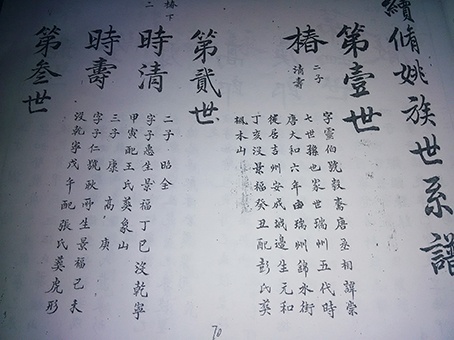 續脩姚族世系譜
第壹世
椿
二子
清壽
字靈伯號毅齋唐丞相諱崇
七世孫也家世瑞州五代時
唐大和六年由瑞州錦水街
徙居吉州安成城邊生元和
丁亥沒景福癸丑配彭氏葬
楓木山
第貳世
椿下
二
時清
二子 昭全
字子惠生景福丁巳沒乾寧
甲寅配王氏葬象山
時壽
三子 康 高 庚
字子仁號耿所生景福己未
沒乾寧戊午配張氏葬虎形
第叁世
70